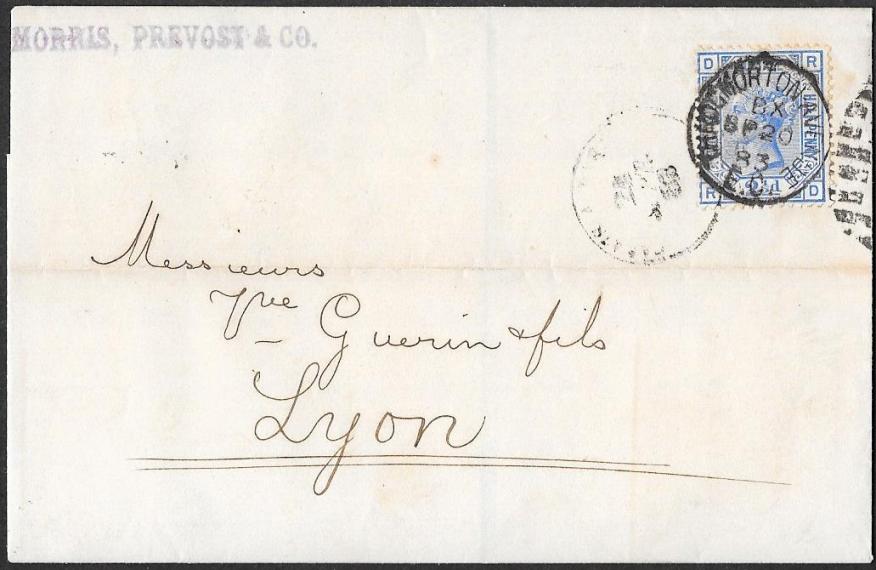 MORRIS, PREVOST & CO.
D R
THROGMORTON AVENUE
BX
SP 20
83
E.C.
R D
Messieurs
Vve Guerin & fils
Lyon